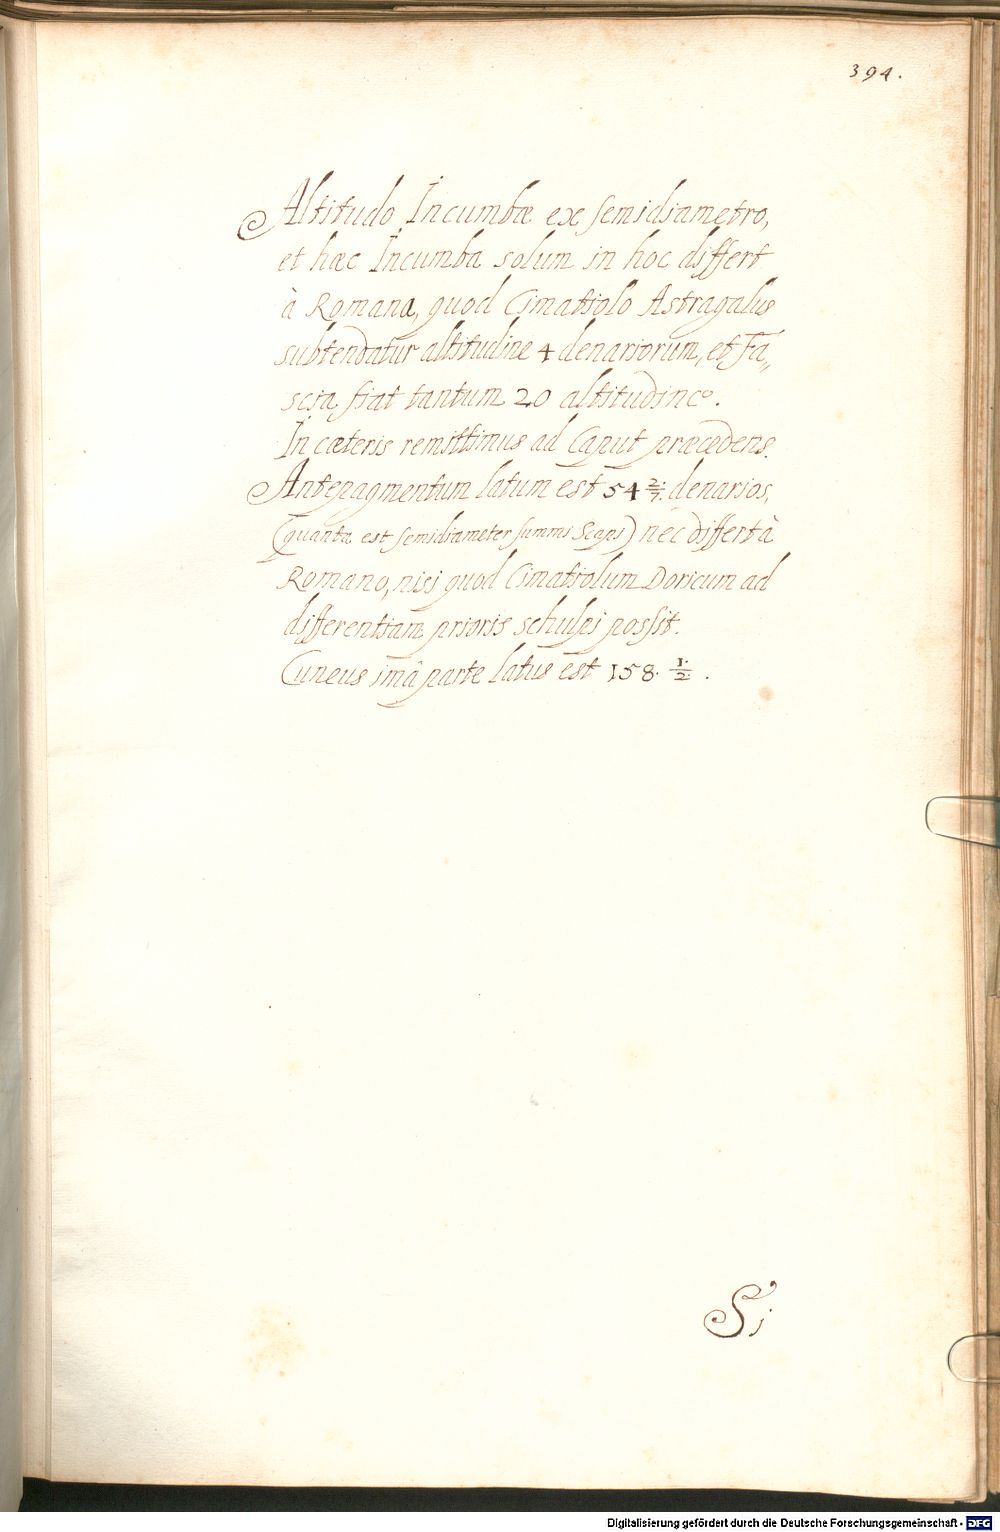 394.
Altitudo Incumbæ ex semidiametro,
et hæc Incumba solum in hoc differt
à Romana, quod Cimatiolo Astragalus
subtendatur altitudine 4 denariorum, et Fa„
scia fiat tantum 20 altitudinē.
In cæteris remittimus ad Caput præcedens.
Antepagmentum latum est 54 2/7. denarios,
(quanta est semidiameter summi Scapi) nec differt à
Romano, nisi quod Cimatiolum Doricum ad
differentiam prioris schulpi possit.
Cuneus imâ parte latus est 158. 1/2.
Si
Digitalisierung gefördert durch die Deutsche Forschungsgemeinschaft - DFG